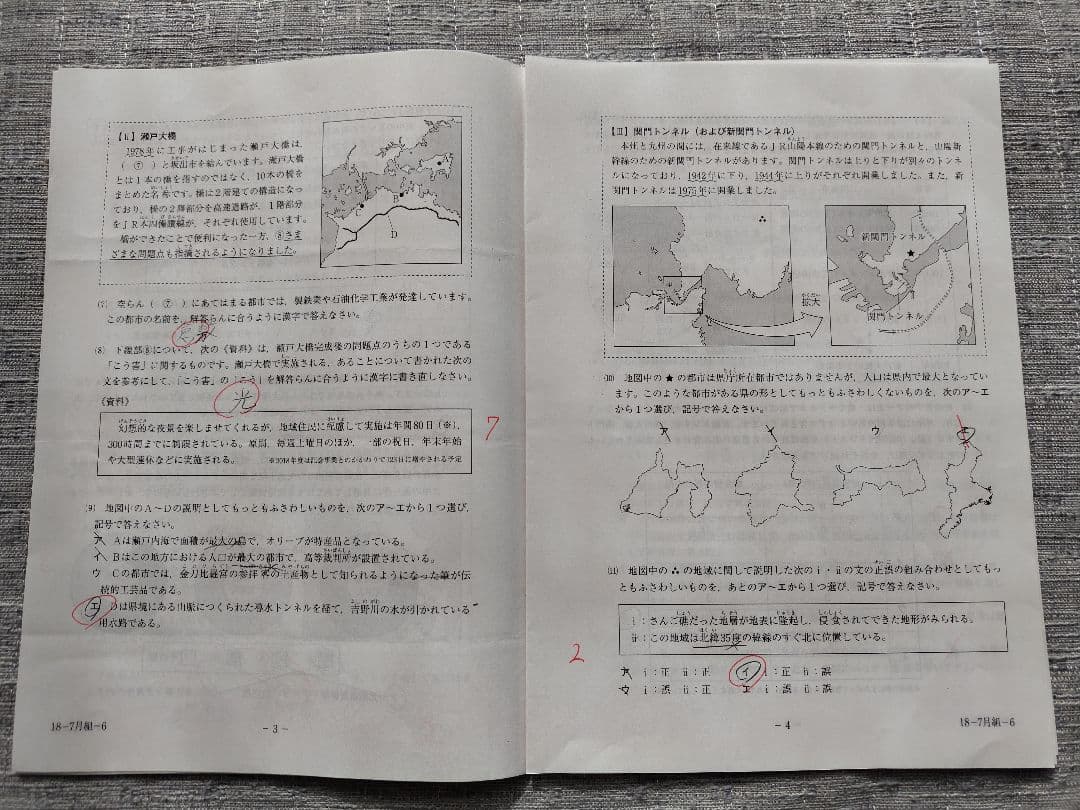 【Ⅱ】瀬戸大橋
1978年に工事がはじまった瀬戸大橋は、
（ ⑦ ）と坂出市を結んでいます。瀬戸大橋
とは1本の橋を指すのではなく、10本の橋を
まとめた名称です。橋は2階建ての構造になっ
ており、橋の2階部分を高速道路が、1階部分
をJR本四備讃線が、それぞれ使用しています。
橋ができたことで便利になった一方、⑧さま
ざまな問題点も指摘されるようになりました。
A
B
C
D
(7) 空らん（ ⑦ ）にあてはまる都市では、製鉄業や石油化学工業が発達しています。
この都市の名前を、解答らんに合うように漢字で答えなさい。
(8) 下線部⑧について、次の《資料》は、瀬戸大橋完成後の問題点のうちの1つである
「こう害」に関するものです。瀬戸大橋で実施される、あることについて書かれた次の
文を参考にして、「こう害」の「こう」を解答らんに合うように漢字に書き直しなさい。
光
《資料》
幻想的な夜景を楽しませてくれるが、地域住民に配慮して実施は年間80日（※）、
300時間までに制限されている。原則、毎週土曜日のほか、一部の祝日、年末年始
や大型連休などに実施される。 ※2018年度は記念事業とのかかわりで123日に増やされる予定
7
(9) 地図中のA～Dの説明としてもっともふさわしいものを、次のア～エから1つ選び、
記号で答えなさい。
ア Aは瀬戸内海で面積が最大の島で、オリーブが特産品となっている。
イ Bはこの地方における人口が最大の都市で、高等裁判所が設置されている。
ウ Cの都市では、金刀比羅宮の参拝客の土産物として知られるようになった筆が伝
統的工芸品である。
エ Dは県境にある山脈につくられた導水トンネルを経て、吉野川の水が引かれている
用水路である。
18－7月組－6
－3－
【Ⅲ】関門トンネル（および新関門トンネル）
本州と九州の間には、在来線であるJR山陽本線のための関門トンネルと、山陽新
幹線のための新関門トンネルがあります。関門トンネルは上りと下りが別々のトンネ
ルになっており、1942年に下り、1944年に上りがそれぞれ開業しました。また、新
関門トンネルは1975年に開業しました。
拡大
新関門トンネル
★
関門トンネル
(10) 地図中の★の都市は県庁所在都市ではありませんが、人口は県内で最大となってい
ます。このような都市がある県の形としてもっともふさわしくないものを、次のア～エ
から1つ選び、記号で答えなさい。
ア イ ウ エ
(11) 地図中の∴の地域に関して説明した次のⅰ・ⅱの文の正誤の組み合わせとしてもっ
ともふさわしいものを、あとのア～エから1つ選び、記号で答えなさい。
ⅰ：さんご礁だった地層が地表に隆起し、侵食されてできた地形がみられる。
ⅱ：この地域は北緯35度の緯線のすぐ北に位置している。
2
ア ⅰ：正 ⅱ：正 イ ⅰ：正 ⅱ：誤
ウ ⅰ：誤 ⅱ：正 エ ⅰ：誤 ⅱ：誤
－4－
18－7月組－6